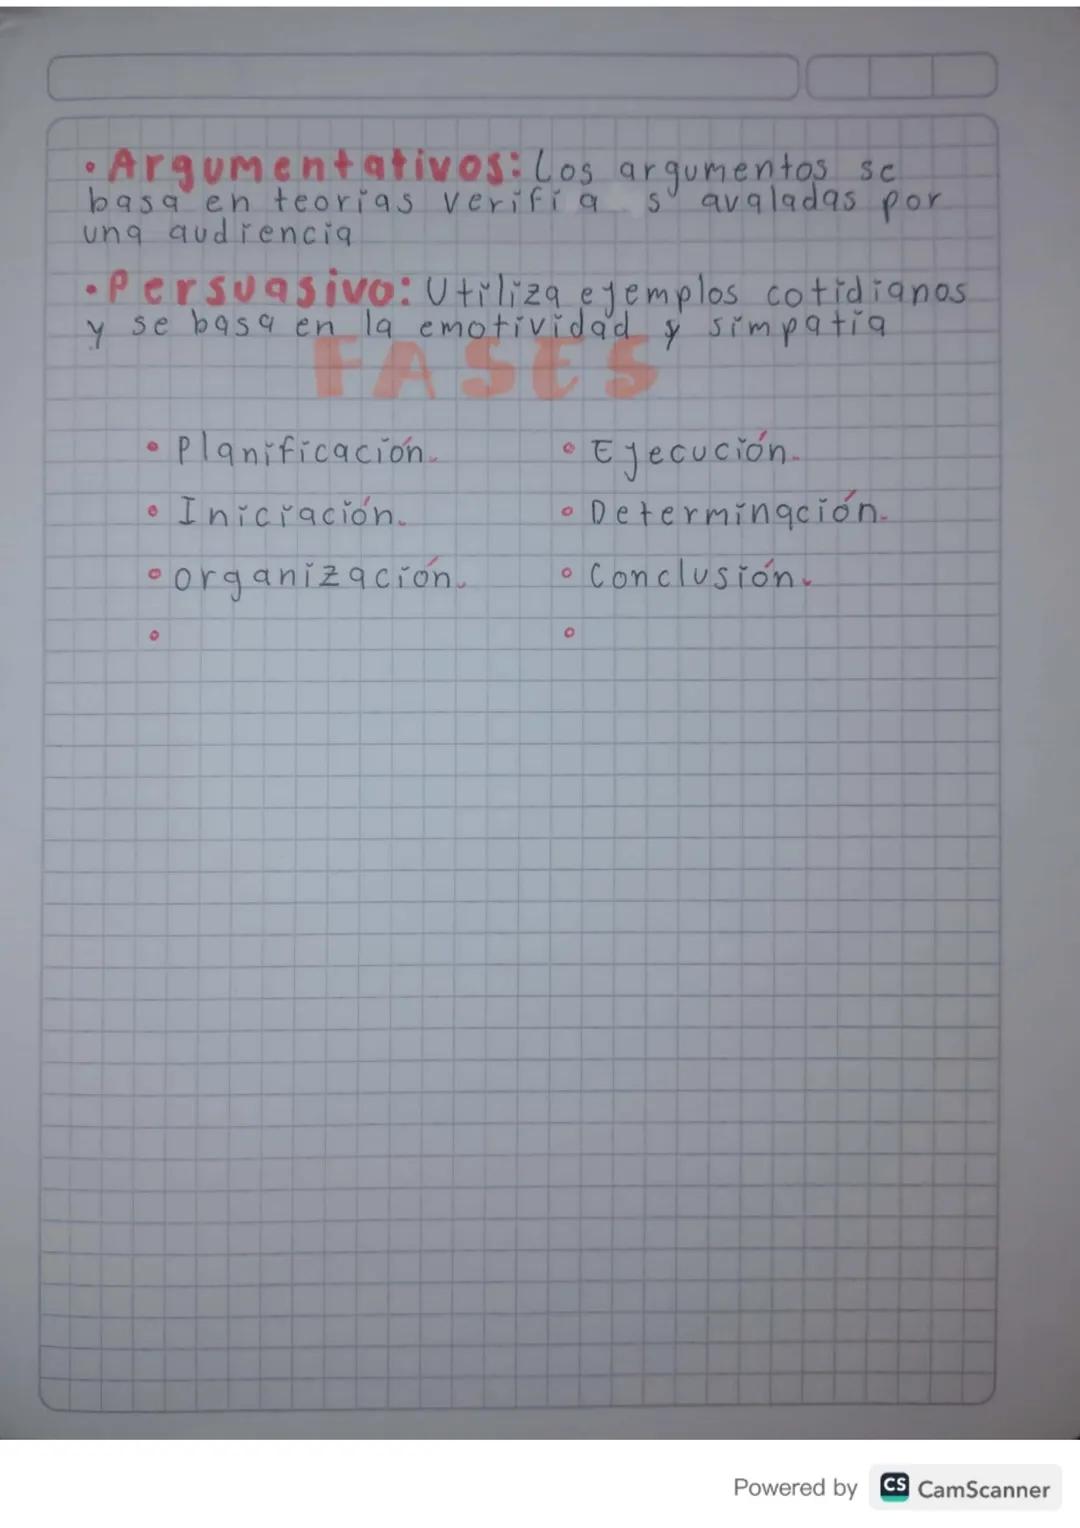 • Argumentativos: Los argumentos se
basa en teorías avaladas por
una audiencia
• Persuasivo: Utiliza ejemplos cotidianos
y se basa en la emotividad y simpatía
FASES
• Planificación.
• Iniciación.
• organización.
• Ejecución.
• Determinación.
• Conclusión.
Powered by CS CamScanner